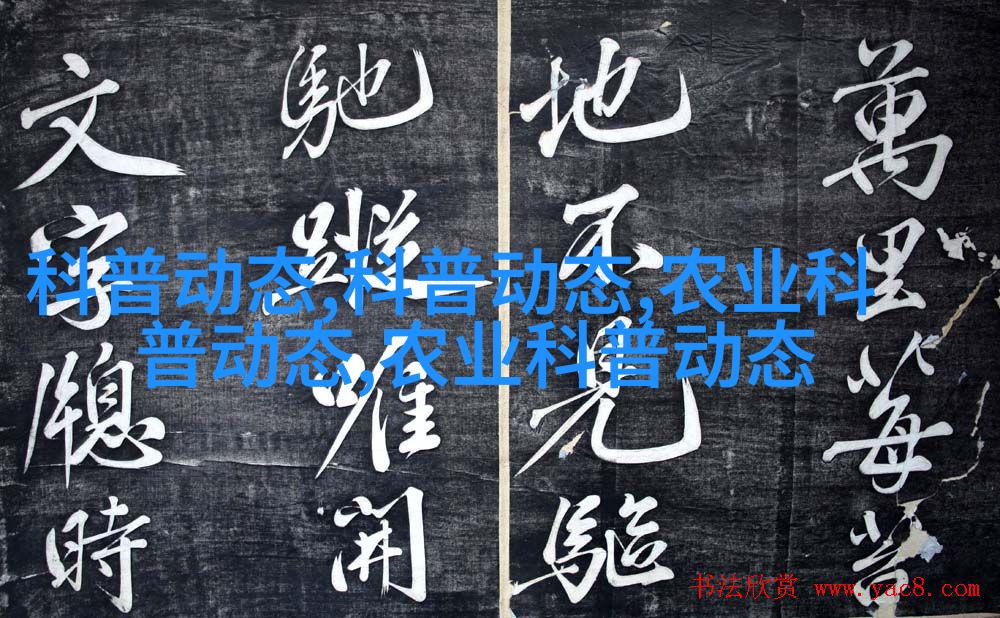 萬里莓苔
地不見驅
馳蹤唯開
文字牕時
科普动态,科普动态,农业科
普动态,农业科普动态
书法欣赏 www.yac8.com